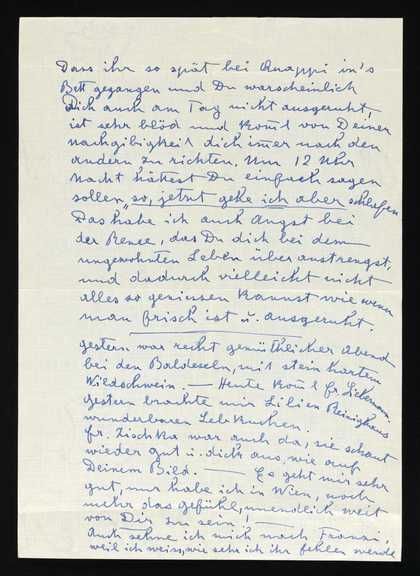 Dass ihr so spät bei Knappi in's
Bett gegangen und Du warscheinlich
Dich auch am Tag nicht ausgeruht,
ist sehr blöd und kom̄t von Deiner
nachgibigkeit dich im̄er nach den
andern zu richten. Um 12 Uhr
Nacht hättest Du einfach sagen
sollen „so, jetzt gehe ich aber schlafen
Das habe ich auch Angst bei
der Renee, das Du dich bei dem
ungewohnten Leben überanstrengst,
und dadurch vielleicht nicht
alles so geniessen kannst wie wenn
man frisch ist u. ausgeruht.
gestern war recht gemütlicher Abend
bei den Baldeseln, mit steinhartem
Wildschwein. — Heute kom̄t fr. Lieberman.
Gestern brachte mir Lilien Reininghaus
wunderbaren Lebkuchen.
fr. Zischka war auch da, sie schaut
wieder gut u. dick aus, wie auf
Deinem Bild. — Es geht mir sehr
gut, nur habe ich in Wien, noch
mehr das gefühl, unendlich weit
von Dir zu sein! —
Auch sehne ich mich nach Franzi,
weil ich weiss, wie sehr ich ihr fehlen werde